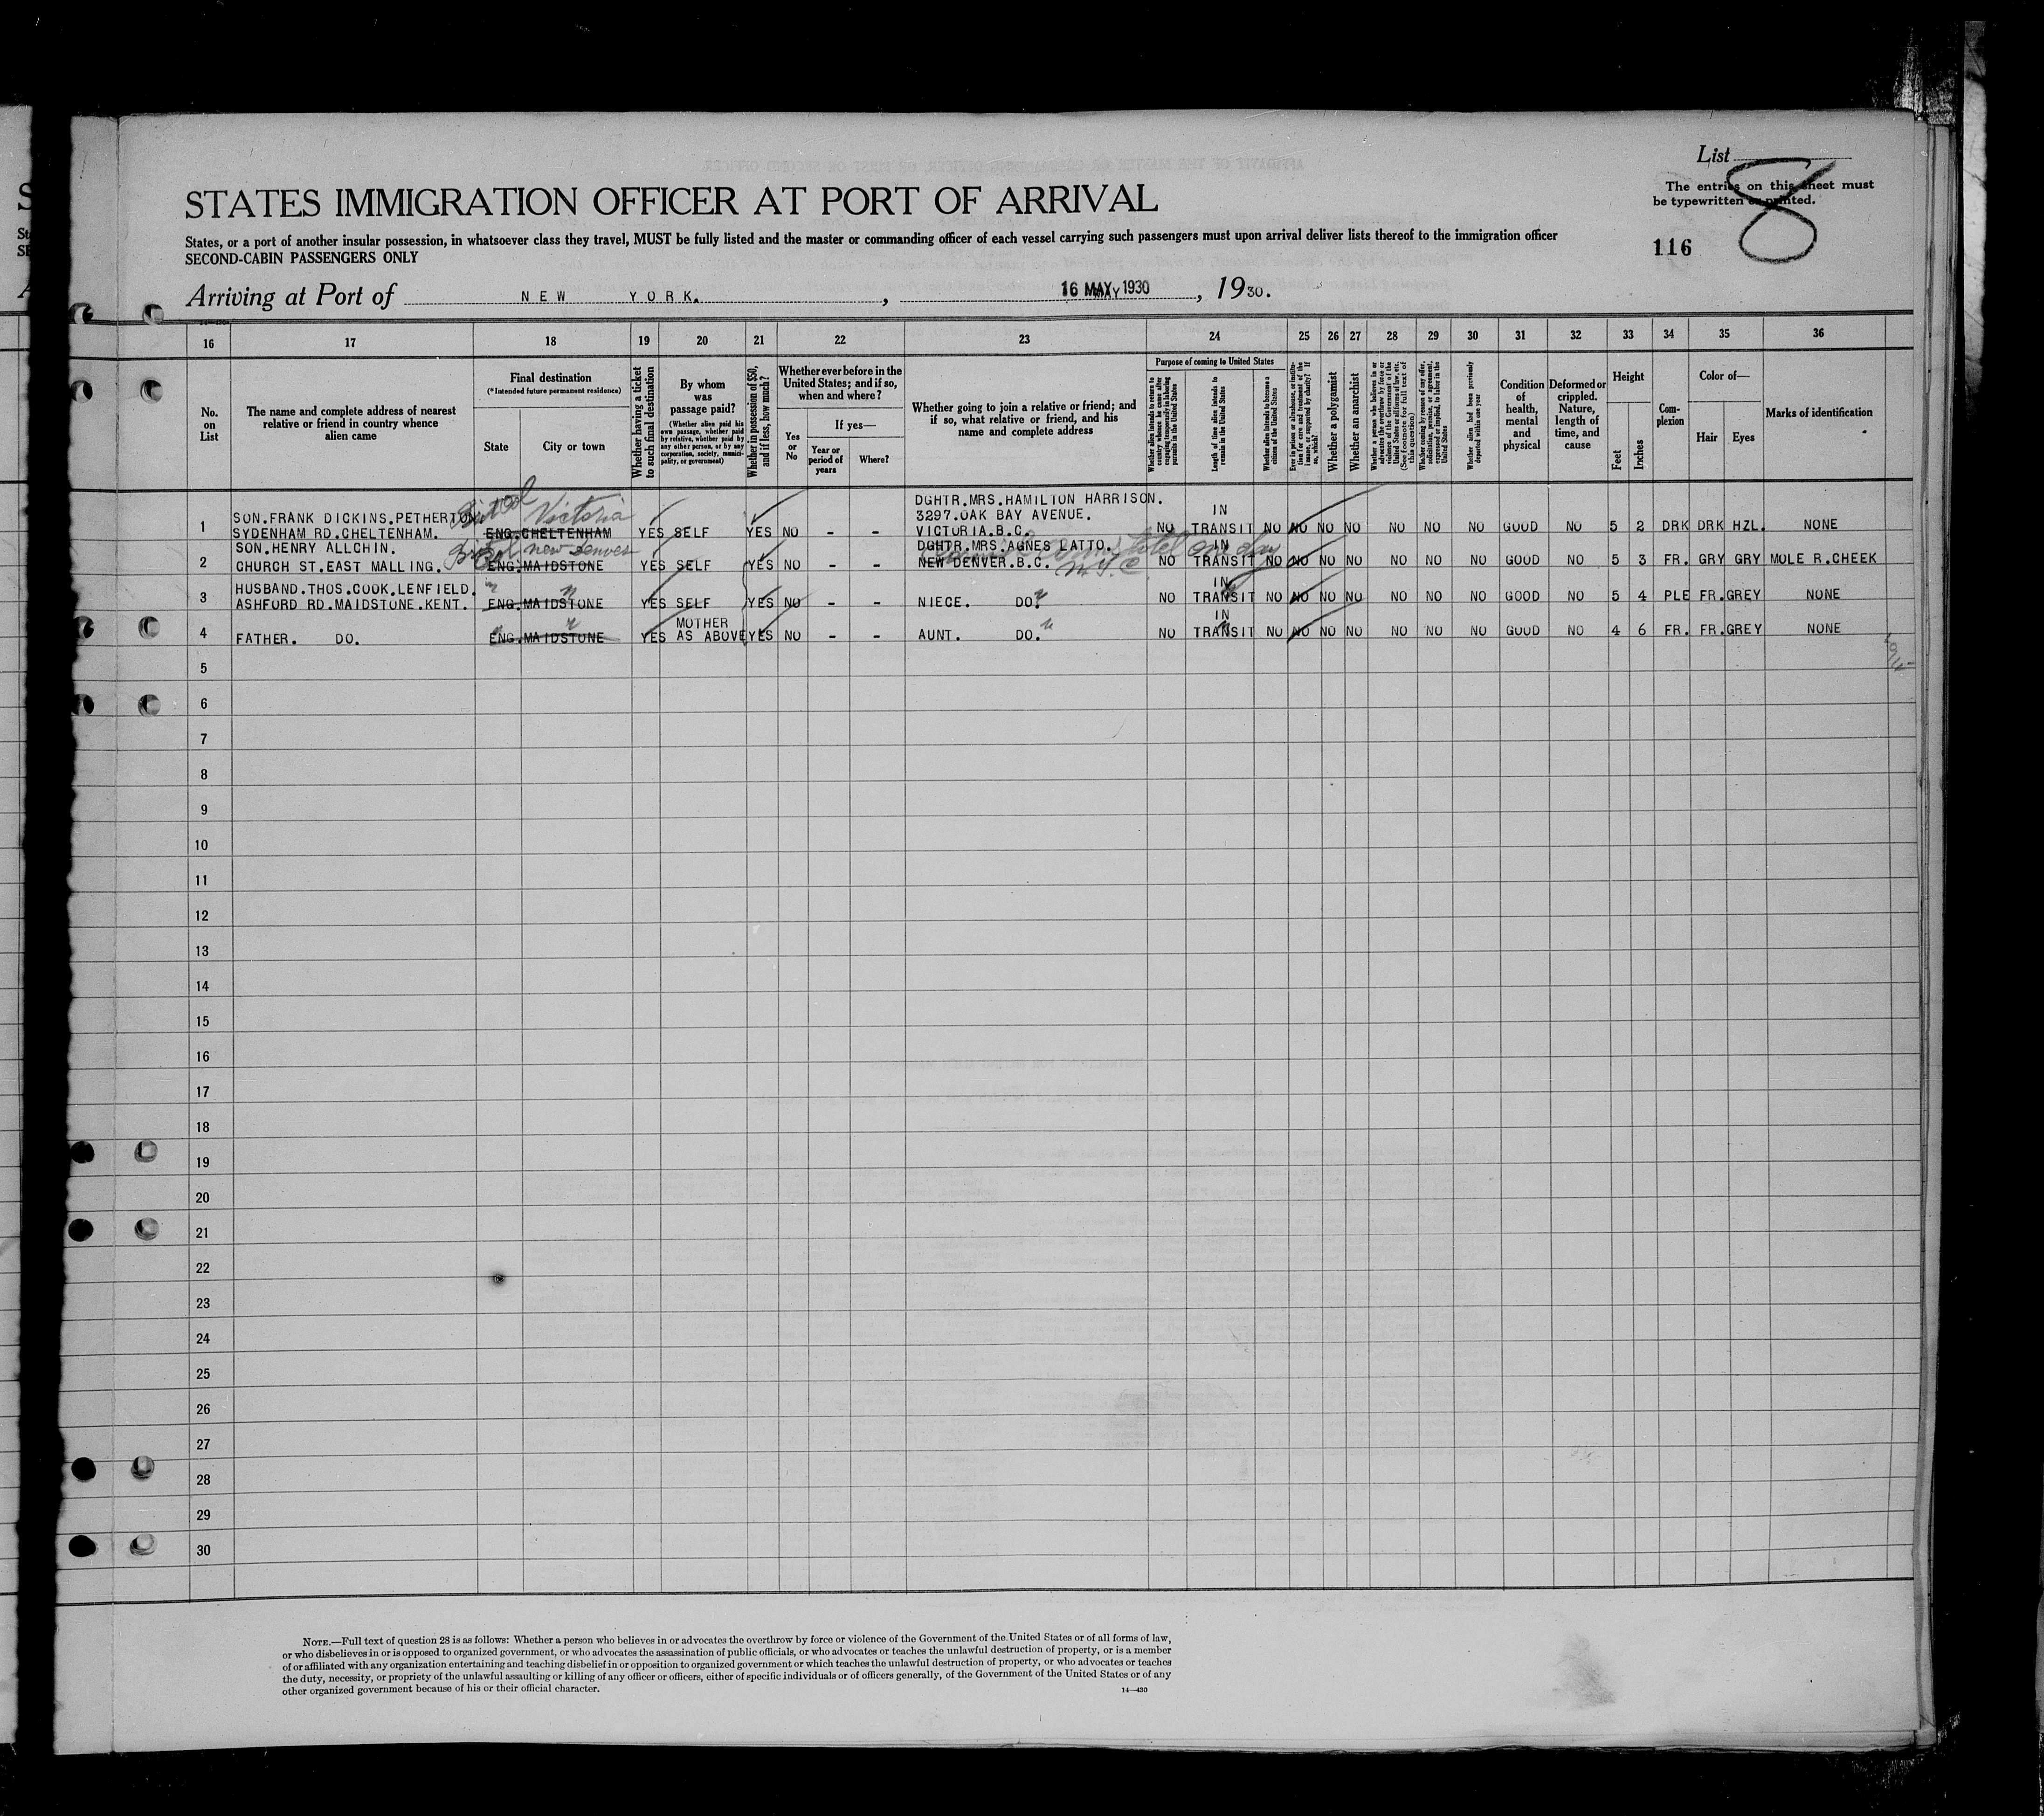 List
8
The entries on this sheet must
be typewritten or printed.
116
STATES IMMIGRATION OFFICER AT PORT OF ARRIVAL
States, or a port of another insular possession, in whatsoever class they travel, MUST be fully listed and the master or commanding officer of each vessel carrying such passengers must upon arrival deliver lists thereof to the immigration officer
SECOND-CABIN PASSENGERS ONLY
Arriving at Port of NEW YORK. , 16 MAY 1930 , 1930.
16 17 18 19 20 21 22 23 24 25 26 27 28 29 30 31 32 33 34 35 36
No. on List
The name and complete address of nearest relative or friend in country whence alien came
Final destination
(*Intended future permanent residence)
State
City or town
Whether having a ticket to such final destination
By whom was passage paid?
(Whether alien paid his own passage, whether paid by relative, whether paid by any other person, or by any corporation, society, municipality, or government)
Whether in possession of $50, and if less, how much?
Whether ever before in the United States; and if so, when and where?
Yes or No
If yes—
Year or period of years
Where?
Whether going to join a relative or friend; and if so, what relative or friend, and his name and complete address
Purpose of coming to United States
Whether alien intends to return to country whence he came after engaging temporarily in laboring pursuits in the United States
Length of time alien intends to remain in the United States
Whether alien intends to become a citizen of the United States
Whether a polygamist
Whether an anarchist
Whether alien had been previously deported within one year
Condition of health, mental and physical
Deformed or crippled. Nature, length of time, and cause
Height
Feet
Inches
Complexion
Color of—
Hair
Eyes
Marks of identification
1 SON.FRANK DICKINS.PETHERTON SYDENHAM RD.CHELTENHAM. ENG.CHELTENHAM Victoria YES SELF YES NO - - DGHTR.MRS.HAMILTON HARRISON. 3297.OAK BAY AVENUE. VICTORIA.B.C. NO IN TRANSIT NO NO NO NO NO NO NO GOOD NO 5 2 DRK DRK HZL. NONE
2 SON.HENRY ALLCHIN. CHURCH ST.EAST MALLING. ENG.MAIDSTONE new denver YES SELF YES NO - - DGHTR.MRS.AGNES LATTO. NEW DENVER.B.C. NO IN TRANSIT NO NO NO NO NO NO NO GOOD NO 5 3 FR. GRY GRY MOLE R.CHEEK
3 HUSBAND.THOS.COOK.LENFIELD. ASHFORD RD.MAIDSTONE.KENT. ENG.MAIDSTONE YES SELF YES NO - - NIECE. DO. NO IN TRANSIT NO NO NO NO NO NO NO GOOD NO 5 4 PLE FR. GREY NONE
4 FATHER. DO. ENG.MAIDSTONE YES MOTHER AS ABOVE YES NO - - AUNT. DO. NO IN TRANSIT NO NO NO NO NO NO NO GOOD NO 4 6 FR. FR. GREY NONE
5
6
7
8
9
10
11
12
13
14
15
16
17
18
19
20
21
22
23
24
25
26
27
28
29
30
NOTE.—Full text of question 28 is as follows: Whether a person who believes in or advocates the overthrow by force or violence of the Government of the United States or of all forms of law,
or who disbelieves in or is opposed to organized government, or who advocates the assassination of public officials, or who advocates or teaches the unlawful destruction of property, or is a member
of or affiliated with any organization entertaining and teaching disbelief in or opposition to organized government or which teaches the unlawful destruction of property, or who advocates or teaches
the duty, necessity, or propriety of the unlawful assaulting or killing of any officer or officers, either of specific individuals or of officers generally, of the Government of the United States or of any
other organized government because of his or their official character.
14—430